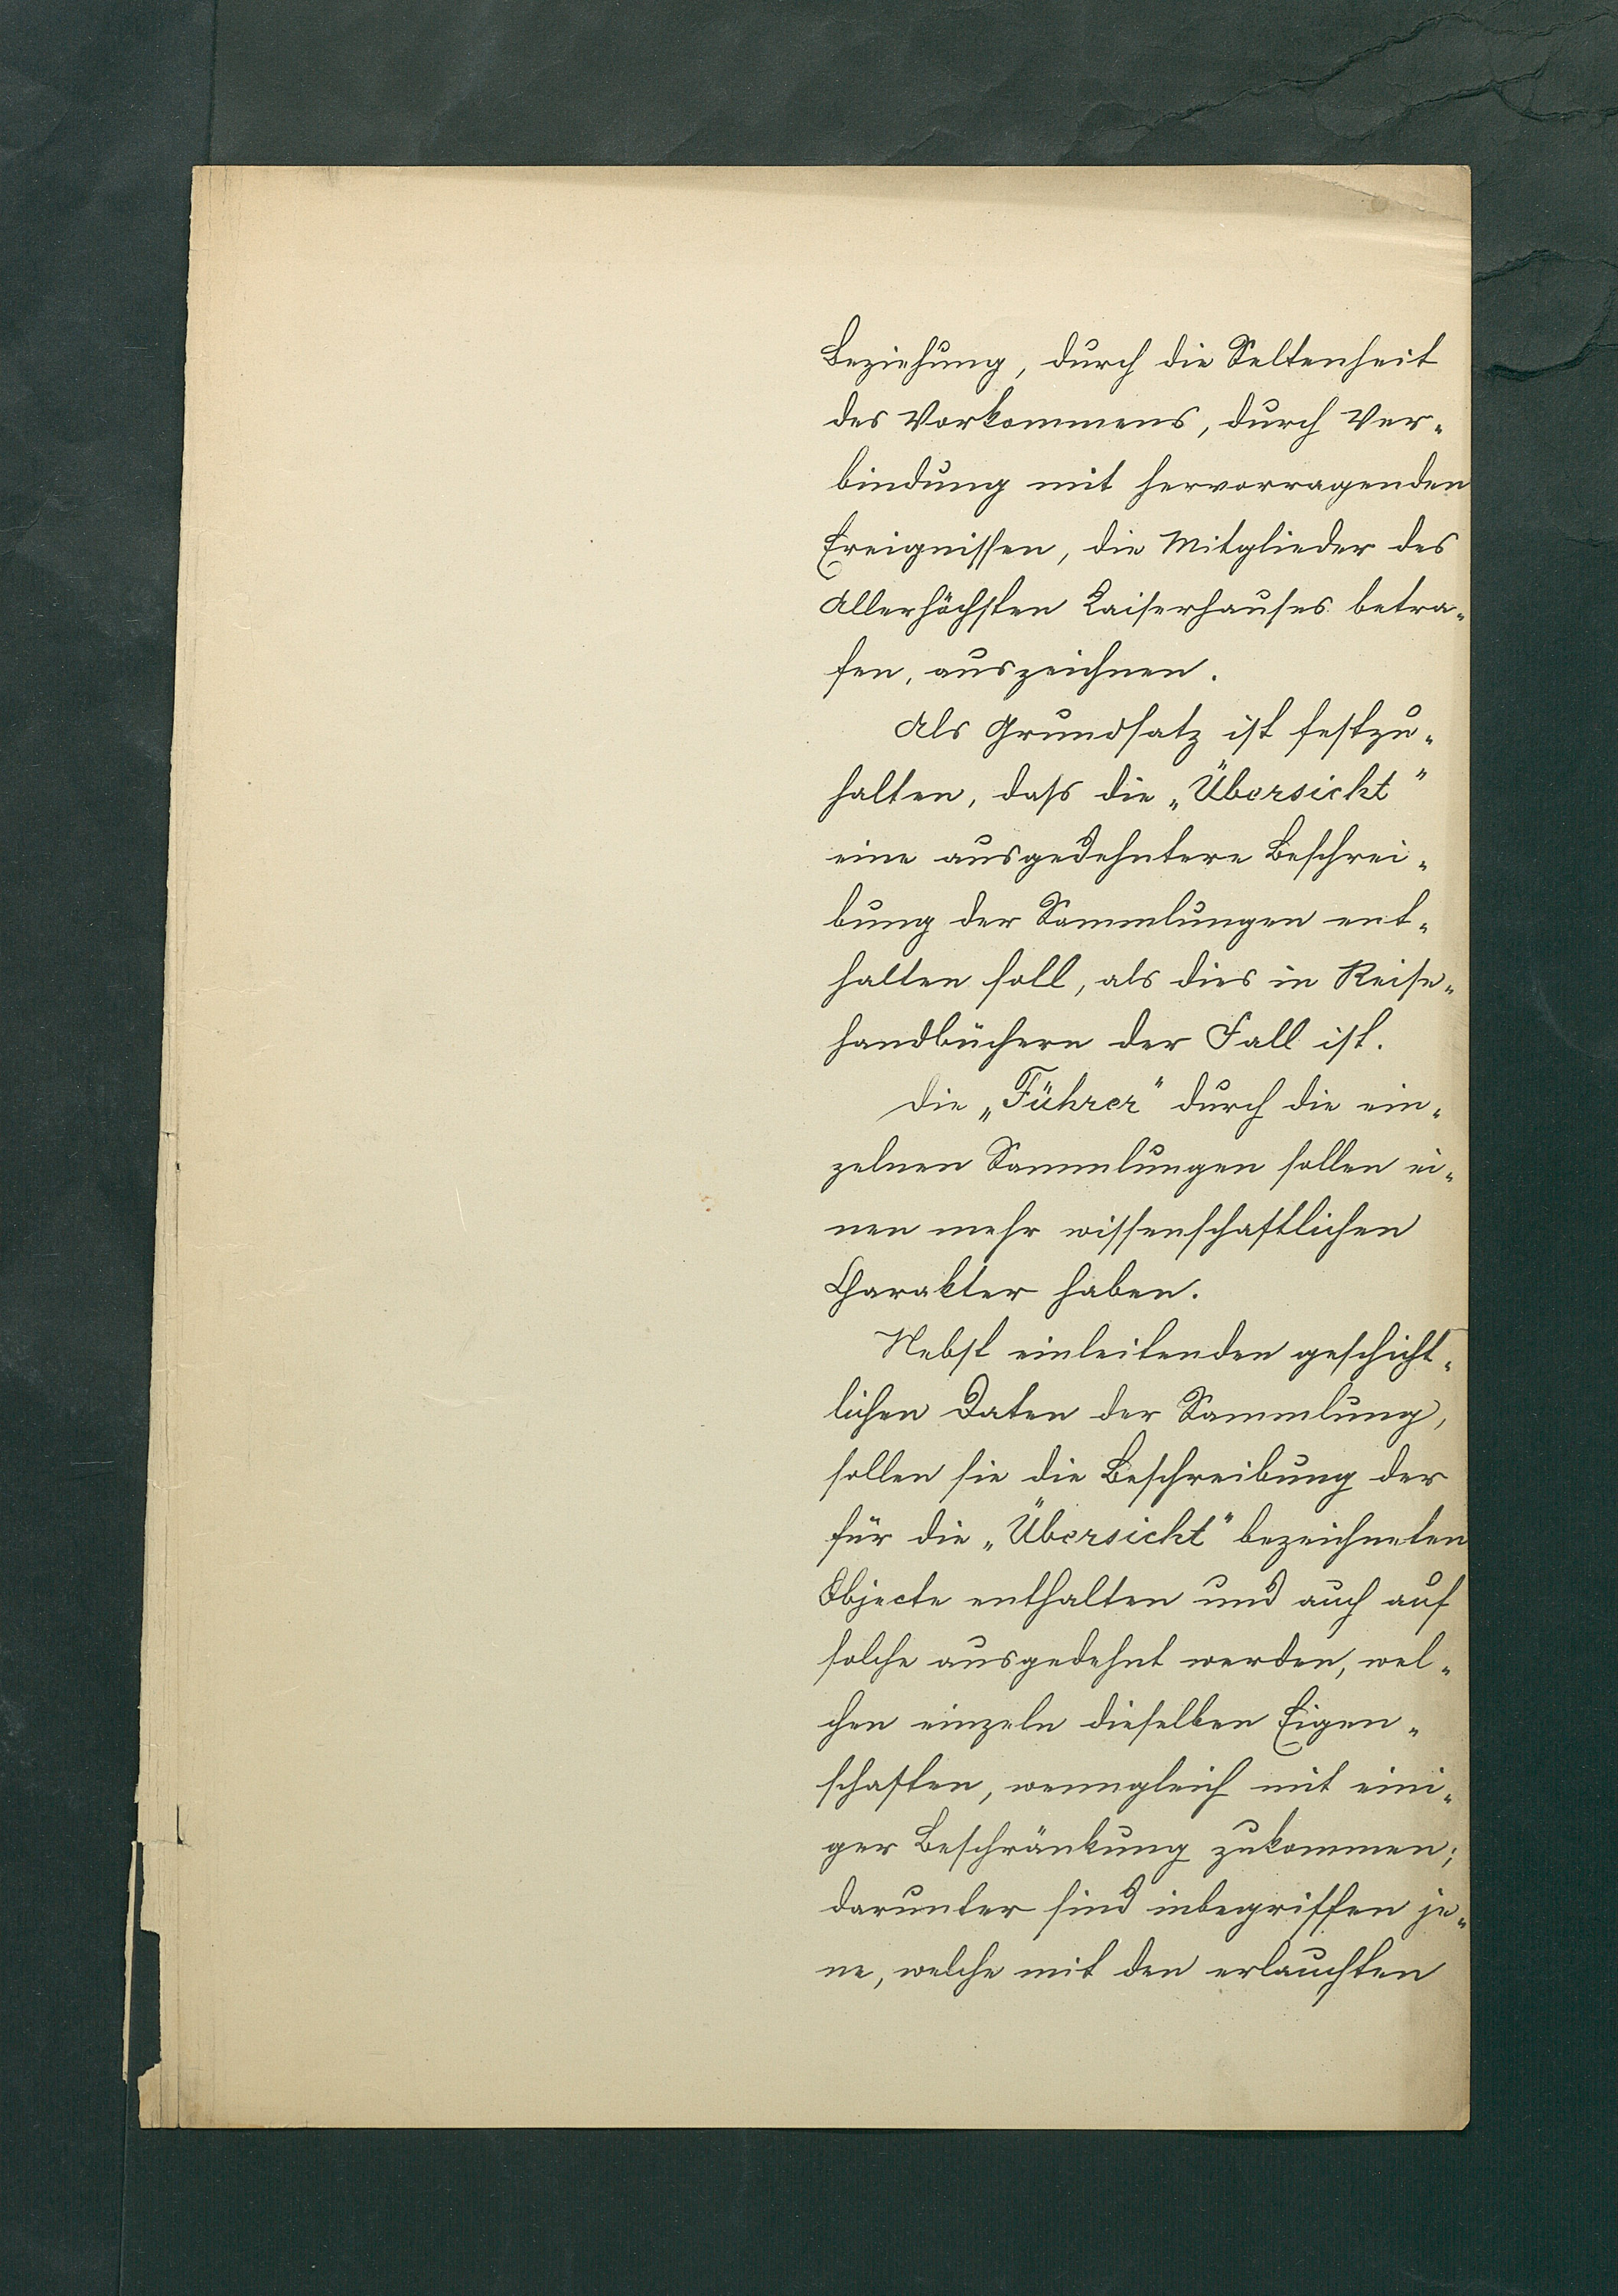 Beziehung, durch die Seltenheit
des Vorkommens, durch Ver-
bindung mit hervorragenden
Ereignissen, die Mitglieder des
Allerhöchsten Kaiserhauses betra-
fen, auszeichnen.
Als Grundsatz ist festzu-
halten, dass die „Übersicht“
eine ausgedehntere Beschrei-
bung der Sammlungen ent-
halten soll, als dies in Reise-
handbüchern der Fall ist.
Die „Führer“ durch die ein-
zelnen Sammlungen sollen ei-
nen mehr wissenschaftlichen
Charakter haben.
Nebst einleitenden geschicht-
lichen Daten der Sammlung,
sollen sie die Beschreibung der
für die „Übersicht“ bezeichneten
Objecte enthalten und auch auf
solche ausgedehnt werden, wel-
chen einzeln dieselben Eigen-
schaften, wenngleich mit eini-
ger Beschränkung zukommen;
darunter sind inbegriffen je-
ne, welche mit den erlauchten